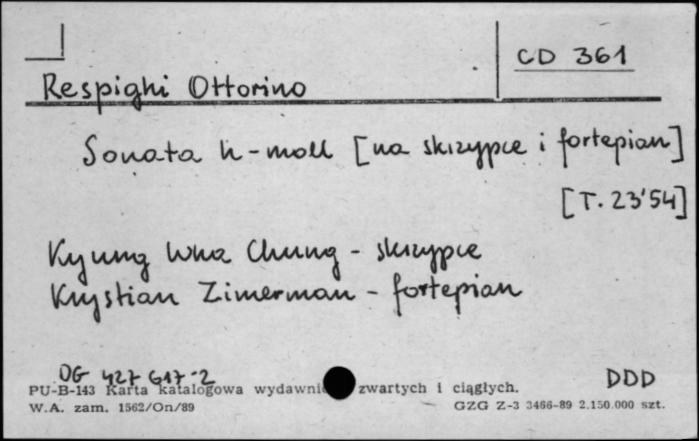 CD 361
Respighi Ottorino
Sonata h-moll [na skrzypce i fortepian]
[T. 23'54]
Kyung Wha Chung - skrzypce
Krystian Zimerman - fortepian
DG 427 617-2 DDD
PU-B-143 Karta katalogowa wydawnic zwartych i ciągłych.
W.A. zam. 1562/On/89 GZG Z-3 3466-89 2.150.000 szt.